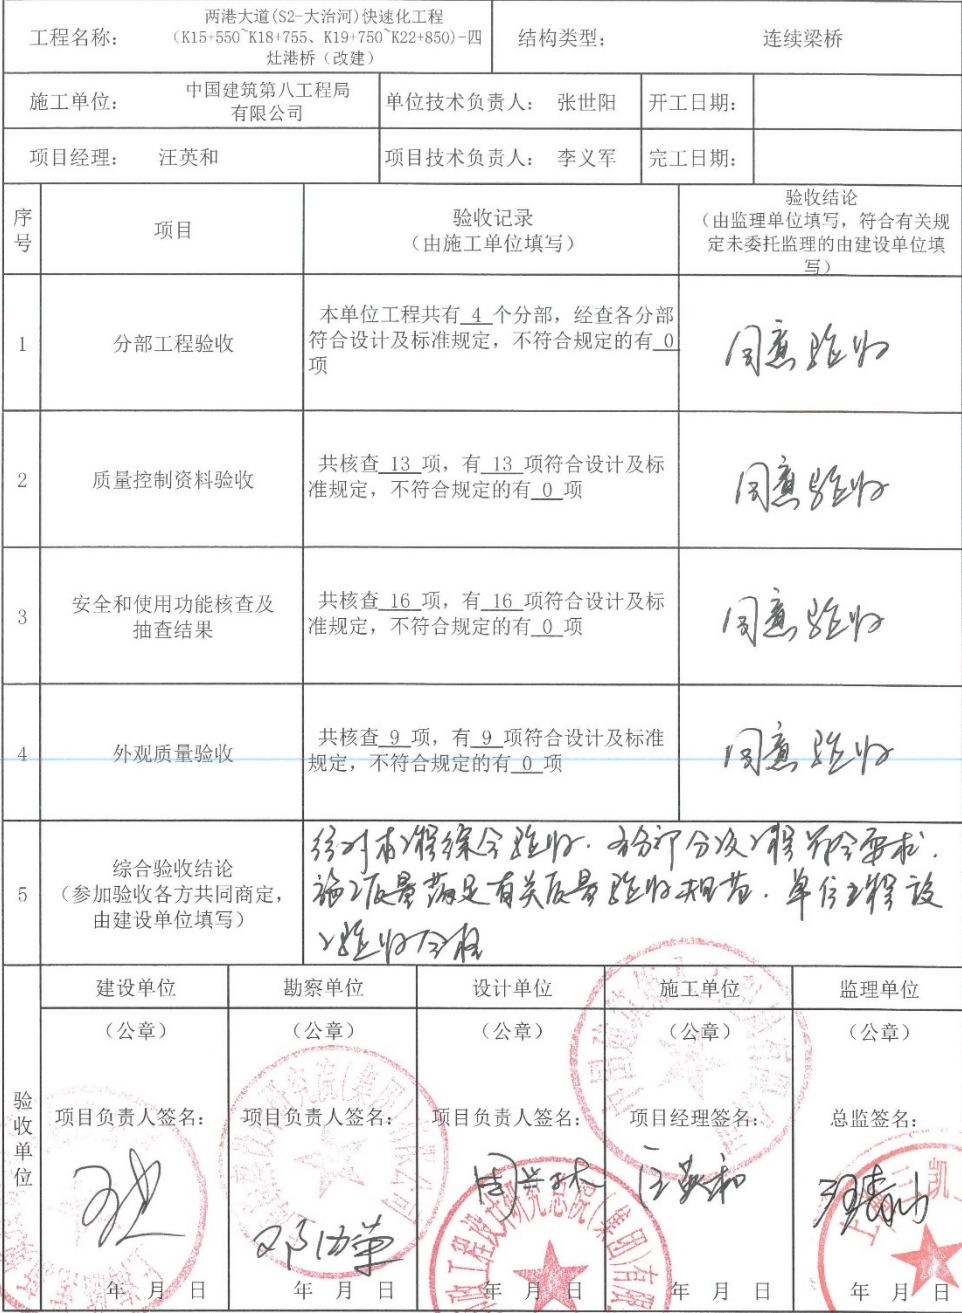 工程名称：
两港大道(S2-大治河)快速化工程
(K15+550~K18+755、K19+750~K22+850)-四
灶港桥（改建）
结构类型：
连续梁桥
施工单位：
中国建筑第八工程局
有限公司
单位技术负责人：
张世阳
开工日期：
项目经理：
汪英和
项目技术负责人：
李义军
完工日期：
序
号
项目
验收记录
（由施工单位填写）
验收结论
（由监理单位填写，符合有关规
定未委托监理的由建设单位填
写）
1
分部工程验收
本单位工程共有 4 个分部，经查各分部
符合设计及标准规定，不符合规定的有 0
项
同意验收
2
质量控制资料验收
共核查 13 项，有 13 项符合设计及标
准规定，不符合规定的有 0 项
同意验收
3
安全和使用功能核查及
抽查结果
共核查 16 项，有 16 项符合设计及标
准规定，不符合规定的有 0 项
同意验收
4
外观质量验收
共核查 9 项，有 9 项符合设计及标准
规定，不符合规定的有 0 项
同意验收
5
综合验收结论
（参加验收各方共同商定，
由建设单位填写）
经对本工程综合验收．各分部分项工程符合要求．
施工质量满足有关质量验收规范．单位工程
验收合格
验
收
单
位
建设单位
勘察单位
设计单位
施工单位
监理单位
（公章）
（公章）
（公章）
（公章）
（公章）
项目负责人签名：
项目负责人签名：
项目负责人签名：
项目经理签名：
总监签名：
汪英和
年 月 日
年 月 日
年 月 日
年 月 日
年 月 日